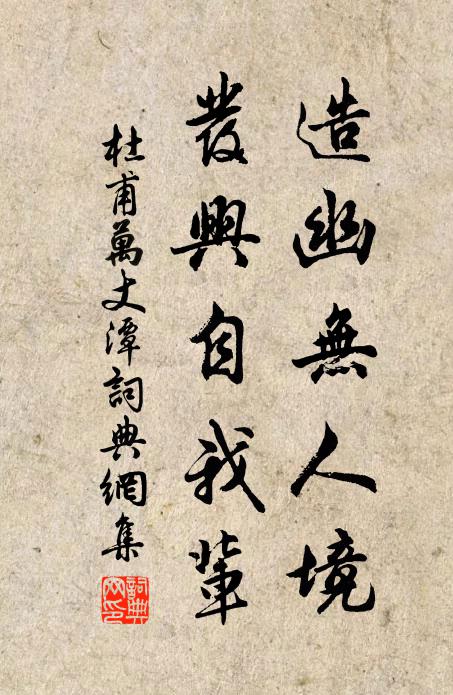 造幽無人境
發興自我輩
杜甫萬丈潭詞典網集
詞典網印